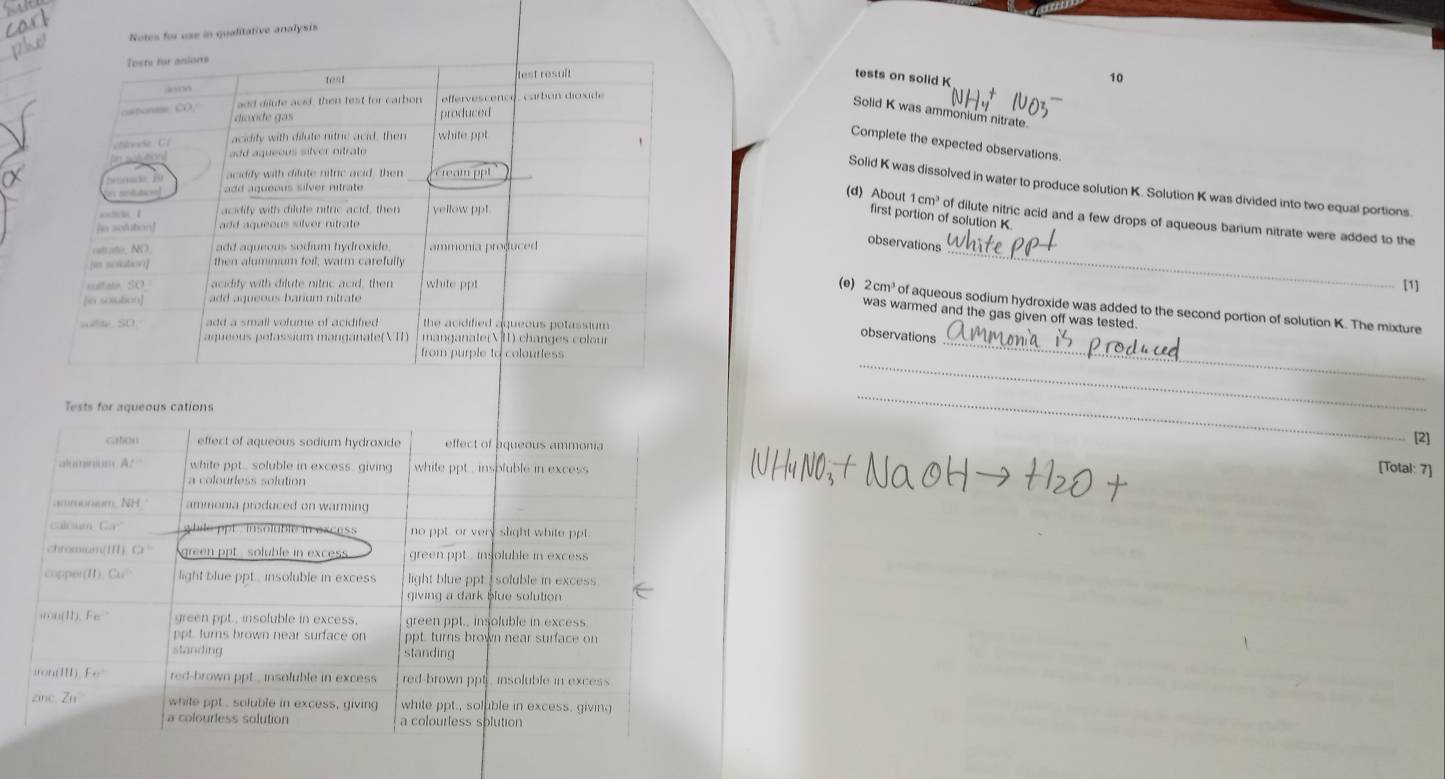 cart
Notes for use in qualitative analysis
Tests for anions
anion test test result
carbonate, CO add dilute acid, then test for carbon dioxide gas effervescence, carbon dioxide produced
chloride, Cl [in solution] acidify with dilute nitric acid, then add aqueous silver nitrate white ppt
bromide, Br [in solution] acidify with dilute nitric acid, then add aqueous silver nitrate cream ppt
iodide, I [in solution] acidify with dilute nitric acid, then add aqueous silver nitrate yellow ppt
nitrate, NO [in solution] add aqueous sodium hydroxide, then aluminium foil; warm carefully ammonia produced
sulfate, SO [in solution] acidify with dilute nitric acid, then add aqueous barium nitrate white ppt
sulfite, SO add a small volume of acidified aqueous potassium manganate(VII) the acidified aqueous potassium manganate(VII) changes colour from purple to colourless
Tests for aqueous cations
cation effect of aqueous sodium hydroxide effect of aqueous ammonia
aluminium, Al white ppt., soluble in excess, giving a colourless solution white ppt., insoluble in excess
ammonium, NH ammonia produced on warming
calcium, Ca white ppt., insoluble in excess no ppt. or very slight white ppt.
chromium(III), Cr green ppt., soluble in excess green ppt., insoluble in excess
copper(II), Cu light blue ppt., insoluble in excess light blue ppt., soluble in excess, giving a dark blue solution
iron(II), Fe green ppt., insoluble in excess, ppt. turns brown near surface on standing green ppt., insoluble in excess, ppt. turns brown near surface on standing
iron(III), Fe red-brown ppt., insoluble in excess red-brown ppt., insoluble in excess
zinc, Zn white ppt., soluble in excess, giving a colourless solution white ppt., soluble in excess, giving a colourless solution
10
tests on solid K
NH₄⁺ NO₃⁻
Solid K was ammonium nitrate.
Complete the expected observations.
Solid K was dissolved in water to produce solution K. Solution K was divided into two equal portions.
(d) About 1 cm³ of dilute nitric acid and a few drops of aqueous barium nitrate were added to the
first portion of solution K.
observations White ppt
[1]
(e) 2 cm³ of aqueous sodium hydroxide was added to the second portion of solution K. The mixture
was warmed and the gas given off was tested.
observations ammonia is produced
[2]
[Total: 7]
NH₄NO₃ + NaOH → H₂O +